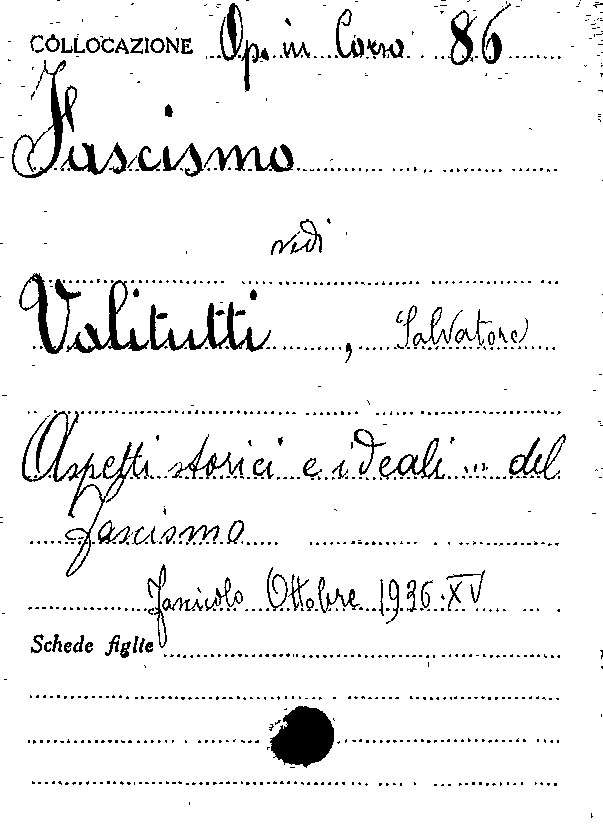 COLLOCAZIONE Op. in Corso 86
Fascismo
vedi
Valitutti, Salvatore
Aspetti storici e ideali ... del
fascismo
Fascicolo Ottobre 1936.XV
Schede figlie